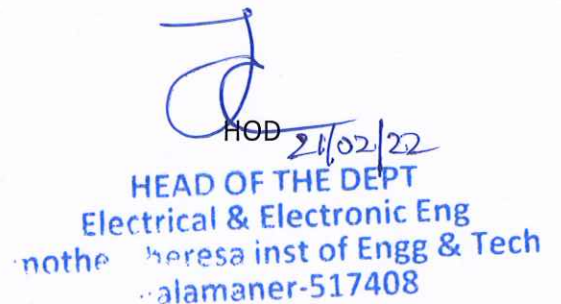 HOD 21/02/22
HEAD OF THE DEPT
Electrical & Electronic Eng
nothe heresa inst of Engg & Tech
alamaner-517408